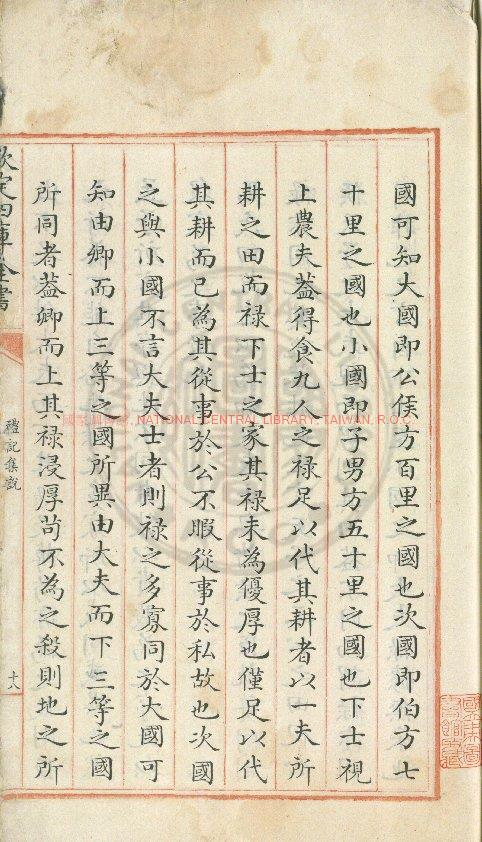 國可知大國即公侯方百里之國也次國即伯方七
十里之國也小國即子男方五十里之國也下士視
上農夫葢得食九人之禄足以代其耕者以一夫所
耕之田而禄下士之家其禄未為優厚也僅足以代
其耕而已為其從事於公不暇從事於私故也次國
之與小國不言大夫士者則禄之多寡同於大國可
知由卿而上三等之國所異由大夫而下三等之國
所同者葢卿而上其禄浸厚苟不為之殺則地之所
欽定四庫全書
禮記集說
十八
NATIONAL CENTRAL LIBRARY, TAIWAN, R.O.C.